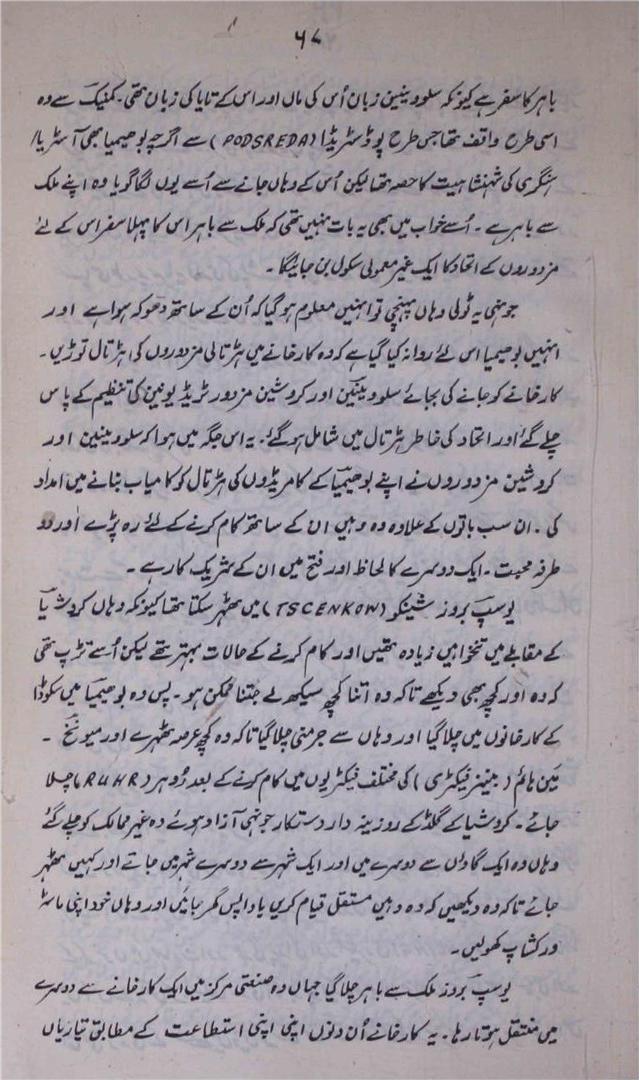 ۶۷
باہر کا سفر ہے کیونکہ سلووینین زبان اُس کی ماں اور اس کے تایا کی زبان تھی۔ کمنیک سے وہ
اسی طرح واقف تھا جس طرح پوڈسٹریڈا (PODSREDA) سے اگرچہ بوہیمیا بھی آسٹریا/
ہنگری کی شہنشاہیت کا حصہ تھا لیکن اُس کے وہاں جانے سے اُسے یوں لگا گویا وہ اپنے ملک
سے باہر ہے۔ اُسے خواب میں بھی یہ بات نہیں تھی کہ ملک سے باہر اس کا پہلا سفر اس کے لئے
مزدوروں کے اتحاد کا ایک غیر معمولی سکول بن جائیگا۔
جونہی یہ ٹولی وہاں پہنچی تو انہیں معلوم ہو گیا کہ اُن کے ساتھ دھوکہ ہوا ہے اور
انہیں بوہیمیا اس لئے روانہ کیا گیا ہے کہ وہ کارخانے میں ہڑتالی مزدوروں کی ہڑتال توڑیں۔
کارخانے کو جانے کی بجائے سلووینین اور کروشین مزدور ٹریڈ یونین کی تنظیم کے پاس
چلے گئے اور اتحاد کی خاطر ہڑتال میں شامل ہو گئے۔ یہ اس جگہ میں ہوا کہ سلووینین اور
کروشین مزدوروں نے اپنے بوحیمیا کے کامریڈوں کی ہڑتال کو کامیاب بنانے میں امداد
کی۔ ان سب باتوں کے علاوہ وہ وہیں ان کے ساتھ کام کرنے کے لئے رہ پڑے اور دو
طرفہ محبت۔ ایک دوسرے کا لحاظ اور فتح میں ان کے شریک کار رہے۔
یوسپ بروز شینکو (TSCENKOW) میں ٹھہر سکتا تھا کیونکہ وہاں کروشیا
کے مقابلے میں تنخواہیں زیادہ تھیں اور کام کرنے کے حالات بہتر تھے لیکن اُسے تڑپ تھی
کہ وہ اور کچھ بھی دیکھے تاکہ وہ اتنا کچھ سیکھ لے جتنا ممکن ہو۔ پس وہ بوحیمیا میں سکوڈا
کے کارخانوں میں چلا گیا اور وہاں سے جرمنی چلا گیا تاکہ وہ کچھ عرصہ ٹھہرے اور میونخ۔
مین ہائم (بینز فیکٹری) کی مختلف فیکٹریوں میں کام کرنے کے بعد رُوہر (RUHR) چلا
جائے۔ کروشیا کے گلڈ کے روزینہ دار دستکار جونہی آزاد ہوئے وہ غیر ممالک کو چلے گئے
وہاں وہ ایک گاؤں سے دوسرے میں اور ایک شہر سے دوسرے شہر میں جاتے اور کہیں ٹھہر
جاتے تاکہ وہ دیکھیں کہ وہ وہیں مستقل قیام کریں یا واپس گھر جائیں اور وہاں خود اپنی ماسٹر
ورکشاپ کھولیں۔
یوسپ بروز ملک سے باہر چلا گیا جہاں وہ صنعتی مرکز میں ایک کارخانے سے دوسرے
میں منتقل ہوتا رہا۔ یہ کارخانے اُن دنوں اپنی اپنی استطاعت کے مطابق تیاریاں